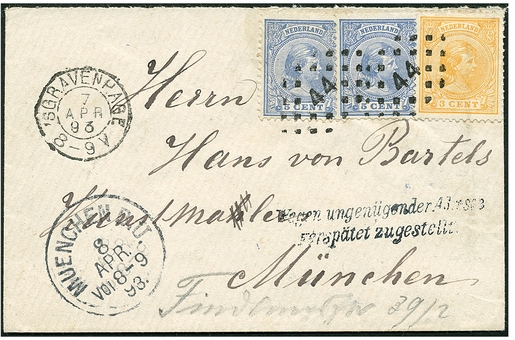 NEDERLAND NEDERLAND NEDERLAND
5 CENT 5 CENT 3 CENT
44 44
'SGRAVENPAGE
7
APR
93
8-9V
Herrn
Hans von Bartels
Kunstmaler
Wegen ungenügender Adresse
verspätet zugestellt.
MUENCHEN
8
APR.
VOR 8-9
93.
München
39/2